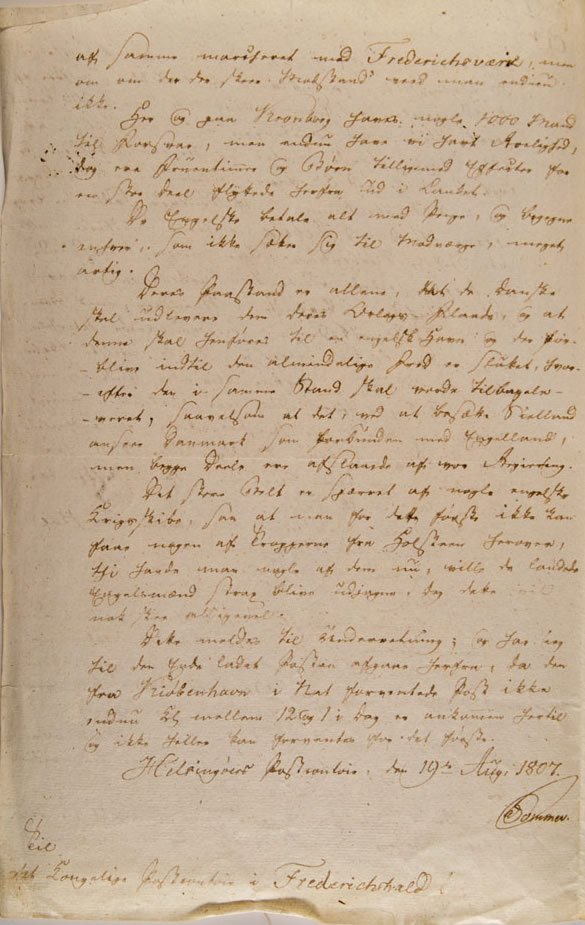 af samme marcheret mod Frederichsværk, men
om der der skeer Modstand veed man endnu
ikke.
Her og paa Kronborg haves nogle 1000 Mand
til Forsvar, men endnu have vi havt Rolighed,
dog ere Fruentimre og Børn tilligemed Effecter for
en stor Deel flyttede herfra ud i Landet.
De Engelske betale alt med Penge, og begegne
enhver, som ikke sætter sig til Modværge, meget
artig.
Deres Paastand er allene, at de Danske
skal udlevere dem deres Orlogs-Flaade, og at
denne skal henføres til en engelsk Havn og der for-
-blive indtil den almindelige Fred er sluttet, hvor-
-efter den i samme Stand skal vorde tilbagele-
-veret, saavelsom at det, ved at besætte Siælland
ansee Danmark som forbunden med Engelland,
men begge Deele ere afslaaede af vor Regiering.
Det store Belt er spærret af nogle engelske
Krigsskibe, saa at man for det første ikke kan
faae nogen af Tropperne fra Holsteen herover,
thi havde man nogle af dem nu, ville de landede
Engelsmænd strax blive udjagne, dog dette vil
nok skee alligevel.
Dette meldes til Underretning; og har jeg
til den Ende ladet Posten afgaae herfra, da den
fra Kiøbenhavn i Nat forventede Post ikke
endnu Kl mellem 12 og 1 i Dag er ankommen hertil
og ikke heller kan forventes for det første.
Helsingöers Postcontoir, den 19de Aug. 1807.
Sommer.
Til
det Kongelige Postcontoir i Frederichshald